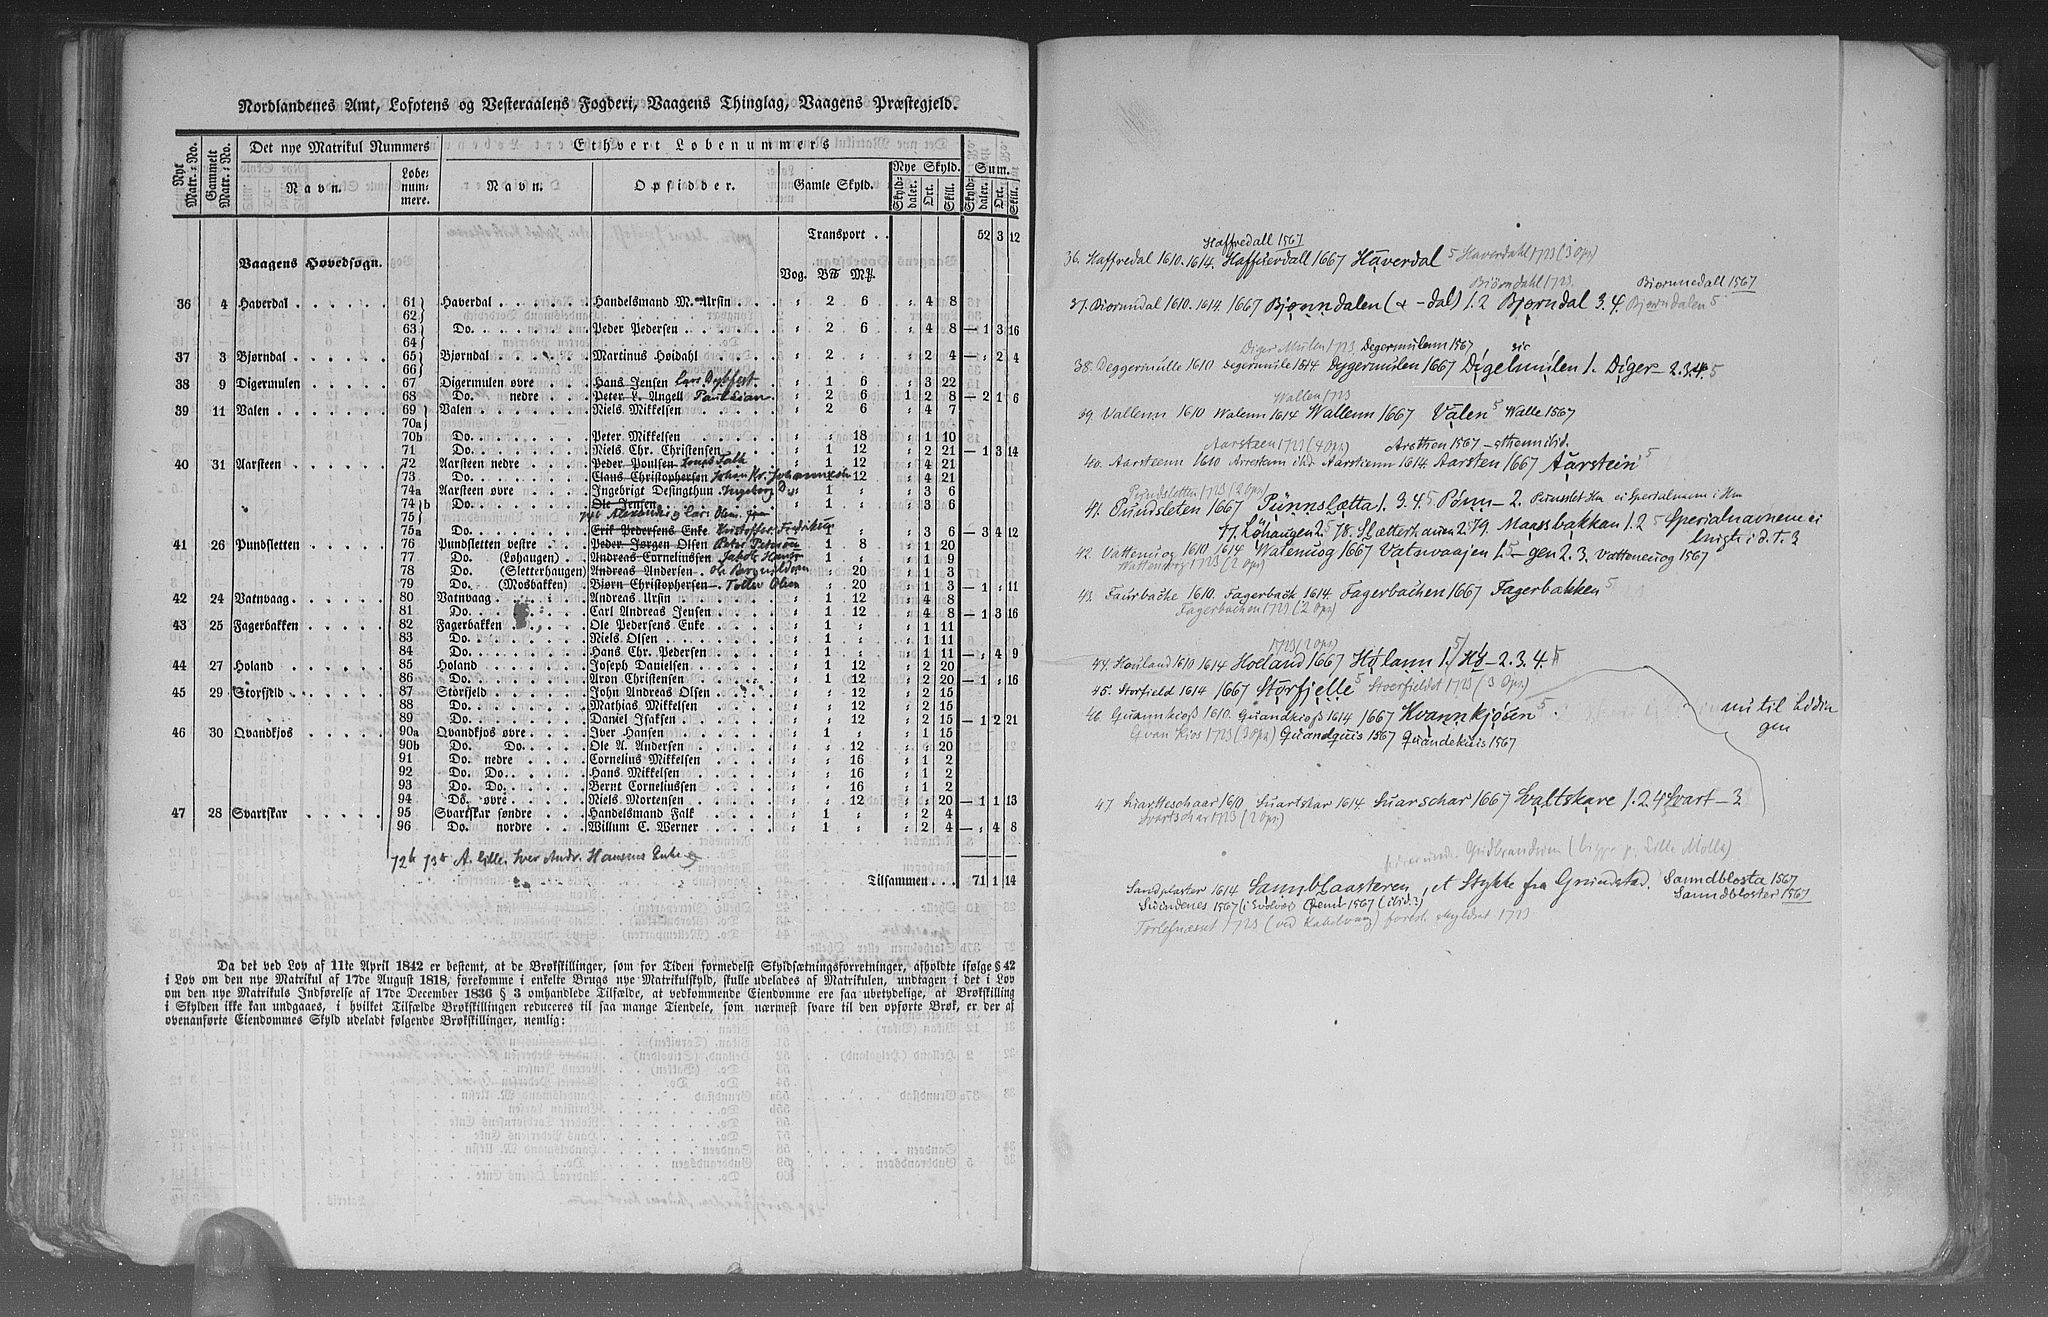 Nordlandenes Amt, Lofotens og Vesteraalens Fogderi, Vaagens Thinglag, Vaagens Præstegjeld.
Nye Matr.-No. Gammelt Matr.-No. Det nye Matrikul Nummers Ethvert Løbenummers
Navn. Løbe-num-mere. Navn. Opsidder. Gamle Skyld. Nye Skyld. Sum.
Skyld-daler. Ort. Skill. Skyld-daler. Ort. Skill.
Transport . . 52 3 12
Vaagens Hovedsogn. Vog. Bℳ Mℳ
36 4 Haverdal 61 Haverdal Handelsmand M. Ursin " 2 6 " 4 8
62
63 Do. Peder Pedersen " 2 6 " 4 8 — 1 3 16
64
37 3 Bjørndal 65 Bjørndal Martinus Høidahl " 2 " " 2 4 — " 2 4
66
38 9 Digermulen 67 Digermulen øvre Hans Jensen Lars Dybfest. " 1 6 " 3 22
68 Do. nedre Peter L. Angell Paul Lian " 2 6 1 2 8 — 2 1 6
39 11 Valen 69 Valen Niels Mikkelsen " 2 6 " 4 7
70a
70b Do. Peter Mikkelsen " " 18 " 1 10
71 Do. Niels Chr. Christensen " " 12 " 2 21 — 1 3 14
40 31 Aarsteen 72 Aarsteen nedre Peder Poulsen Falk " 1 12 " 4 21
73 Do. Claus Christophersen Johan Kr. Johannesen " 1 12 " 4 21
74a Aarsteen øvre Ingebrigt Desingthun " 1 " " 3 6
74b Do. Ole Jensen " 1 " " 3 6
75
75a Do. Erik Pedersens Enke Kristoffer Fredriksen " 1 " " 3 6 — 3 4 12
41 26 Pundsletten 76 Pundsletten vestre Peder Jørgen Olsen Peter Peterson " 1 8 " 1 20
77 Do. (Løhaugen) Andreas Corneliussen Jakob Hansen " 1 " " 1 9
78 Do. (Sletterhaugen) Andreas Andersen " " 20 " 1 3
79 Do. (Mosbakken) Bjørn Christophersen Toller Olsen " " 20 " 1 3 — 1 " 11
42 24 Vatnvaag 80 Vatnvaag Andreas Ursin " 1 12 " 4 8
81 Do. Carl Andreas Jensen " 1 12 " 4 8 — 1 3 16
43 25 Fagerbakken 82 Fagerbakken Ole Pedersens Enke " 1 " " 1 11
83 Do. Niels Olsen " 1 " " 1 11
84 Do. Hans Chr. Pedersen " 1 " " 1 11 — " 4 9
44 27 Holand 85 Holand Joseph Danielsen " 1 12 " 2 20
86 Do. Aron Christensen " 1 12 " 2 20 — 1 " 16
45 29 Storfjeld 87 Storfjeld John Andreas Olsen " " 12 " 2 15
88 Do. Mathias Mikkelsen " " 12 " 2 15
89 Do. Daniel Isaksen " " 12 " 2 15 — 1 2 21
46 30 Qvandkjos 90a Qvandkjos øvre Iver Hansen " 1 " " 1 15
90b Do. Do. Ole A. Andersen " " 12 " " 20
91 Do. nedre Cornelius Mikkelsen " " 16 " 1 2
92 Do. Do. Hans Mikkelsen " " 16 " 1 2
93 Do. Do. Bernt Corneliussen " " 16 " 1 2
94 Do. øvre Niels Mortensen " " 12 " " 20 — 1 1 13
47 28 Svartskar 95 Svartskar søndre Handelsmand Falk " 1 " " 2 4
96 Do. nordre Willum C. Werner " 1 " " 2 4 — " 4 8
72b 73b A. lille. Iver Andr. Hansens Enke
Tilsammen . . . 71 1 14
Da det ved Lov af 11te April 1842 er bestemt, at de Brøkskillinger, som for Tiden formedelst Skyldsætningsforretninger, afholdte ifølge § 42
i Lov om den nye Matrikul af 17de August 1818, forekomme i enkelte Brugs nye Matrikulskyld, skulle udelades af Matrikulen, undtagen i det i Lov
om den nye Matrikuls Indførelse af 17de December 1836 § 3 omhandlede Tilfælde, at vedkommende Eiendomme ere saa ubetydelige, at Brøkskilling
i Skylden ikke kan undgaaes, i hvilket Tilfælde Brøkskillingen reduceres til saa mange Tiendele, som nærmest svare til den opførte Brøk, er der af
ovenanførte Eiendommes Skyld udeladt følgende Brøkskillinger, nemlig:
Haffredall 1567
36. Haffredal 1610. 1614. Haffuerdall 1667 Haverdal 5 Haverdahl 1723 (3 Ops)
Biørndahl 1723. Biornnedall 1567
37. Biorundal 1610. 1614. 1667 Bjønndalen (x -dal) 1.2 Bjørndal 3.4. Bjørndalen 5
Diger Mulen 1723, Degermulenn 1567, sic
38. Deggermulle 1610 Degermule 1614 Dyggermulen 1667 Digelmulen 1. Diger- 2.3.4. 5
Wallen 1723
39. Vallenn 1610 Walenn 1614 Wallenn 1667 Valen 5 Walle 1567
Aarsteen 1723 (4 Ops) Arsthen 1567 - sthenn ibid.
40. Aarstenn 1610 Aarstenn 1614. Aarsten 1667 Aarstein 5
Pundsletten 1723 (2 Ops)
41. Pundsleten 1667 Pünnslætta 1. 3. 4. 5 Pønn- 2.
77. Løhaugen 2. 5 78. Slætterhauen 2. 5 79. Maasbakkan 1.2 5 Specialnavnene ei
42. Vattenuog 1610 1614 Watenuog 1667 Vatnvaajen 1. 5 -gen 2. 3. Vatteneuog 1567
Wattenvog 1723 (2 Ops)
43. Faurbache 1610. Fagerback 1614. Fagerbachen 1667 Fagerbakken 5
Fagerbachen 1723 (2 Ops)
1723 (2 Ops)
44. Houland 1610 1614 Hoeland 1667 Hylann 1. 5/ Hy- 2. 3. 4.
45. Storfield 1614 1667 Storfjelle 5 Stoerfieldet 1723 (3 Ops.)
46. Quannkioß 1610. Quandkioß 1614 1667 Kvannkjosen 5
nu til Lødingen
Qvan Kios 1723 (3 Ops) Quandquis 1567 Quandekuis 1567
47 Suartteschaar 1610. Suartskar 1614 Suarschar 1667 Svaltskare 1. 2. 4 Svart- 3
Svartschar 1723 (2 Ops)
Gudbrandsøen (ligger p. Lille Molla)
Sandplaster 1614 Sannblaasteren, et Stykke fra Grundstad. Sanndblosta 1567
Suindenes 1567 (i Svolvær) Sanndbloster 1567
Torlefnæsset 1723 (ved Kabelvaag) forsk. skyldsat 1723